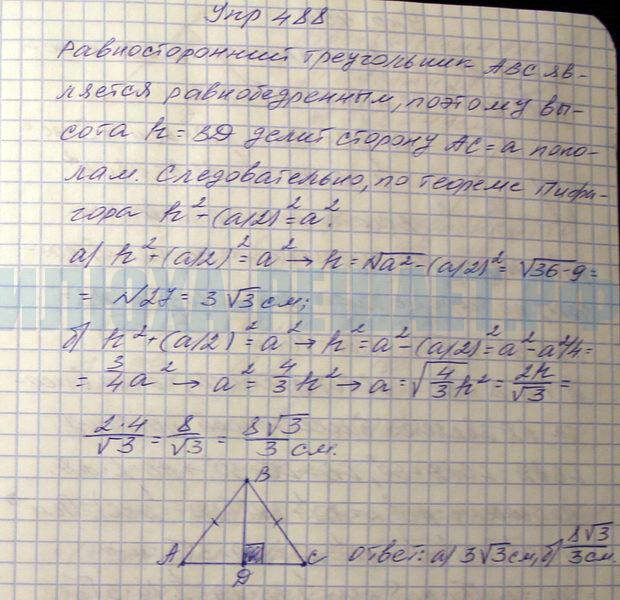 Упр 488
Равносторонний треугольник ABC яв-
ляется равнобедренным, поэтому вы-
сота h = BD делит сторону AC = a попо-
лам. Следовательно, по теореме Пифа-
гора h² - (a/2)² = a².
а) h² + (a/2)² = a² → h = √a² - (a/2)² = √36-9 =
= √27 = 3√3 см;
б) h² + (a/2)² = a² → h² = a² - (a/2)² = a² - a²/4 =
= 3/4 a² → a² = 4/3 h² → a = √4/3 h² = 2h/√3 =
2·4/√3 = 8/√3 = 8√3/3 см.
B
A
D
C
Ответ: а) 3√3 см, б) 8√3/3 см.